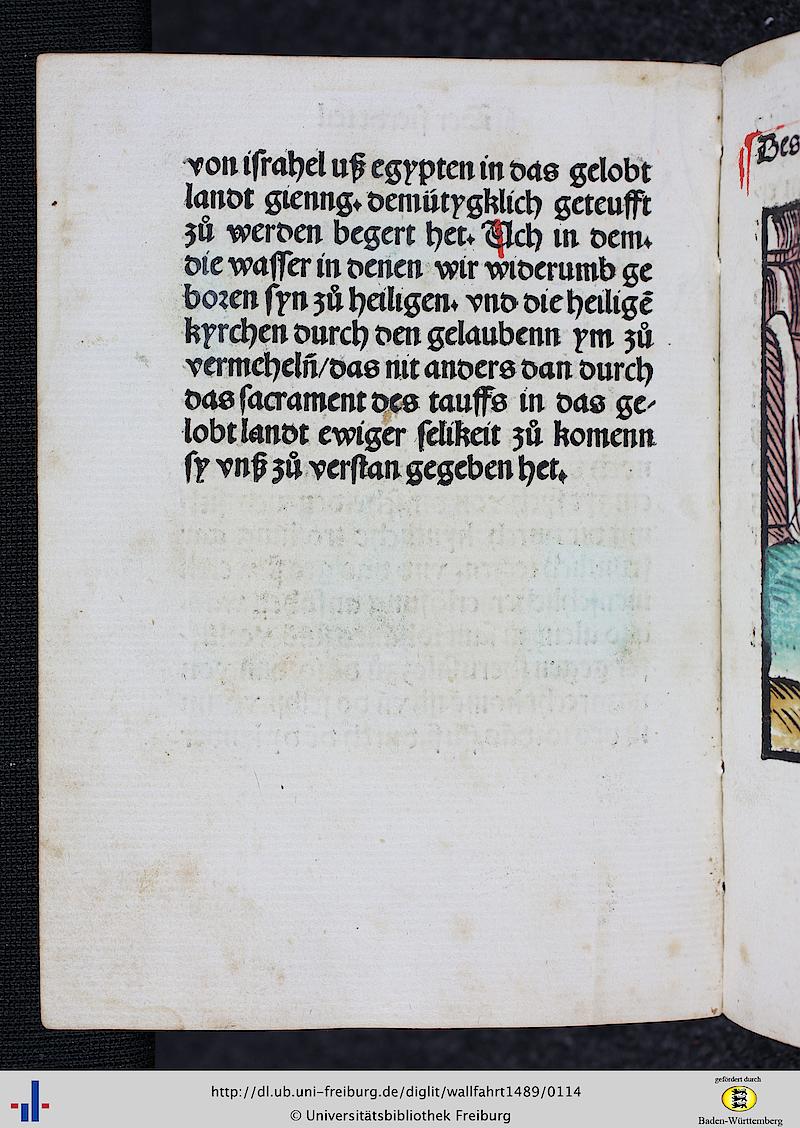 von iſrahel uß egypten in das gelobt
landt gienng. demütygklich geteufft
zů werden begert het. Uch in dem.
die waſſer in denen wir widerumb ge
boꝛen ſyn zů heiligen. vnd die heiligẽ
kyrchen durch den gelaubenn ym zů
vermeheln̄/das nit anders dan durch
das ſacrament des tauffs in das ge⸗
lobt landt ewiger ſelikeit zů komenn
ſy vnß zů verſtan gegeben het.
Des
http://dl.ub.uni-freiburg.de/diglit/wallfahrt1489/0114
© Universitätsbibliothek Freiburg
gefördert durch
Baden-Württemberg